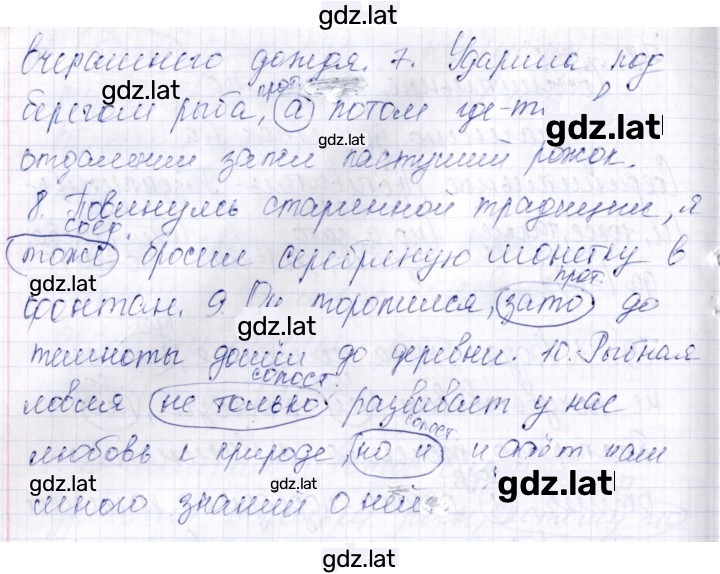 gdz.lat
вчерашнего дождя. 7. Ударила под
gdz.lat
прот.
берегом рыба, а потом где-т
gdz.lat
отдалении запел пастуший рожок.
8. Повинуясь старинной традиции, я
gdz.lat
соед.
тоже бросил серебряную монетку в
gdz.lat
прот.
фонтан. 9. Он торопился, зато до
gdz.lat
темноты дошёл до деревни. 10. Рыбная
gdz.lat
сопост.
ловля не только развивает у нас
сопост.
любовь к природе, но и нам
gdz.lat
gdz.lat
много знаний о ней.
gdz.lat